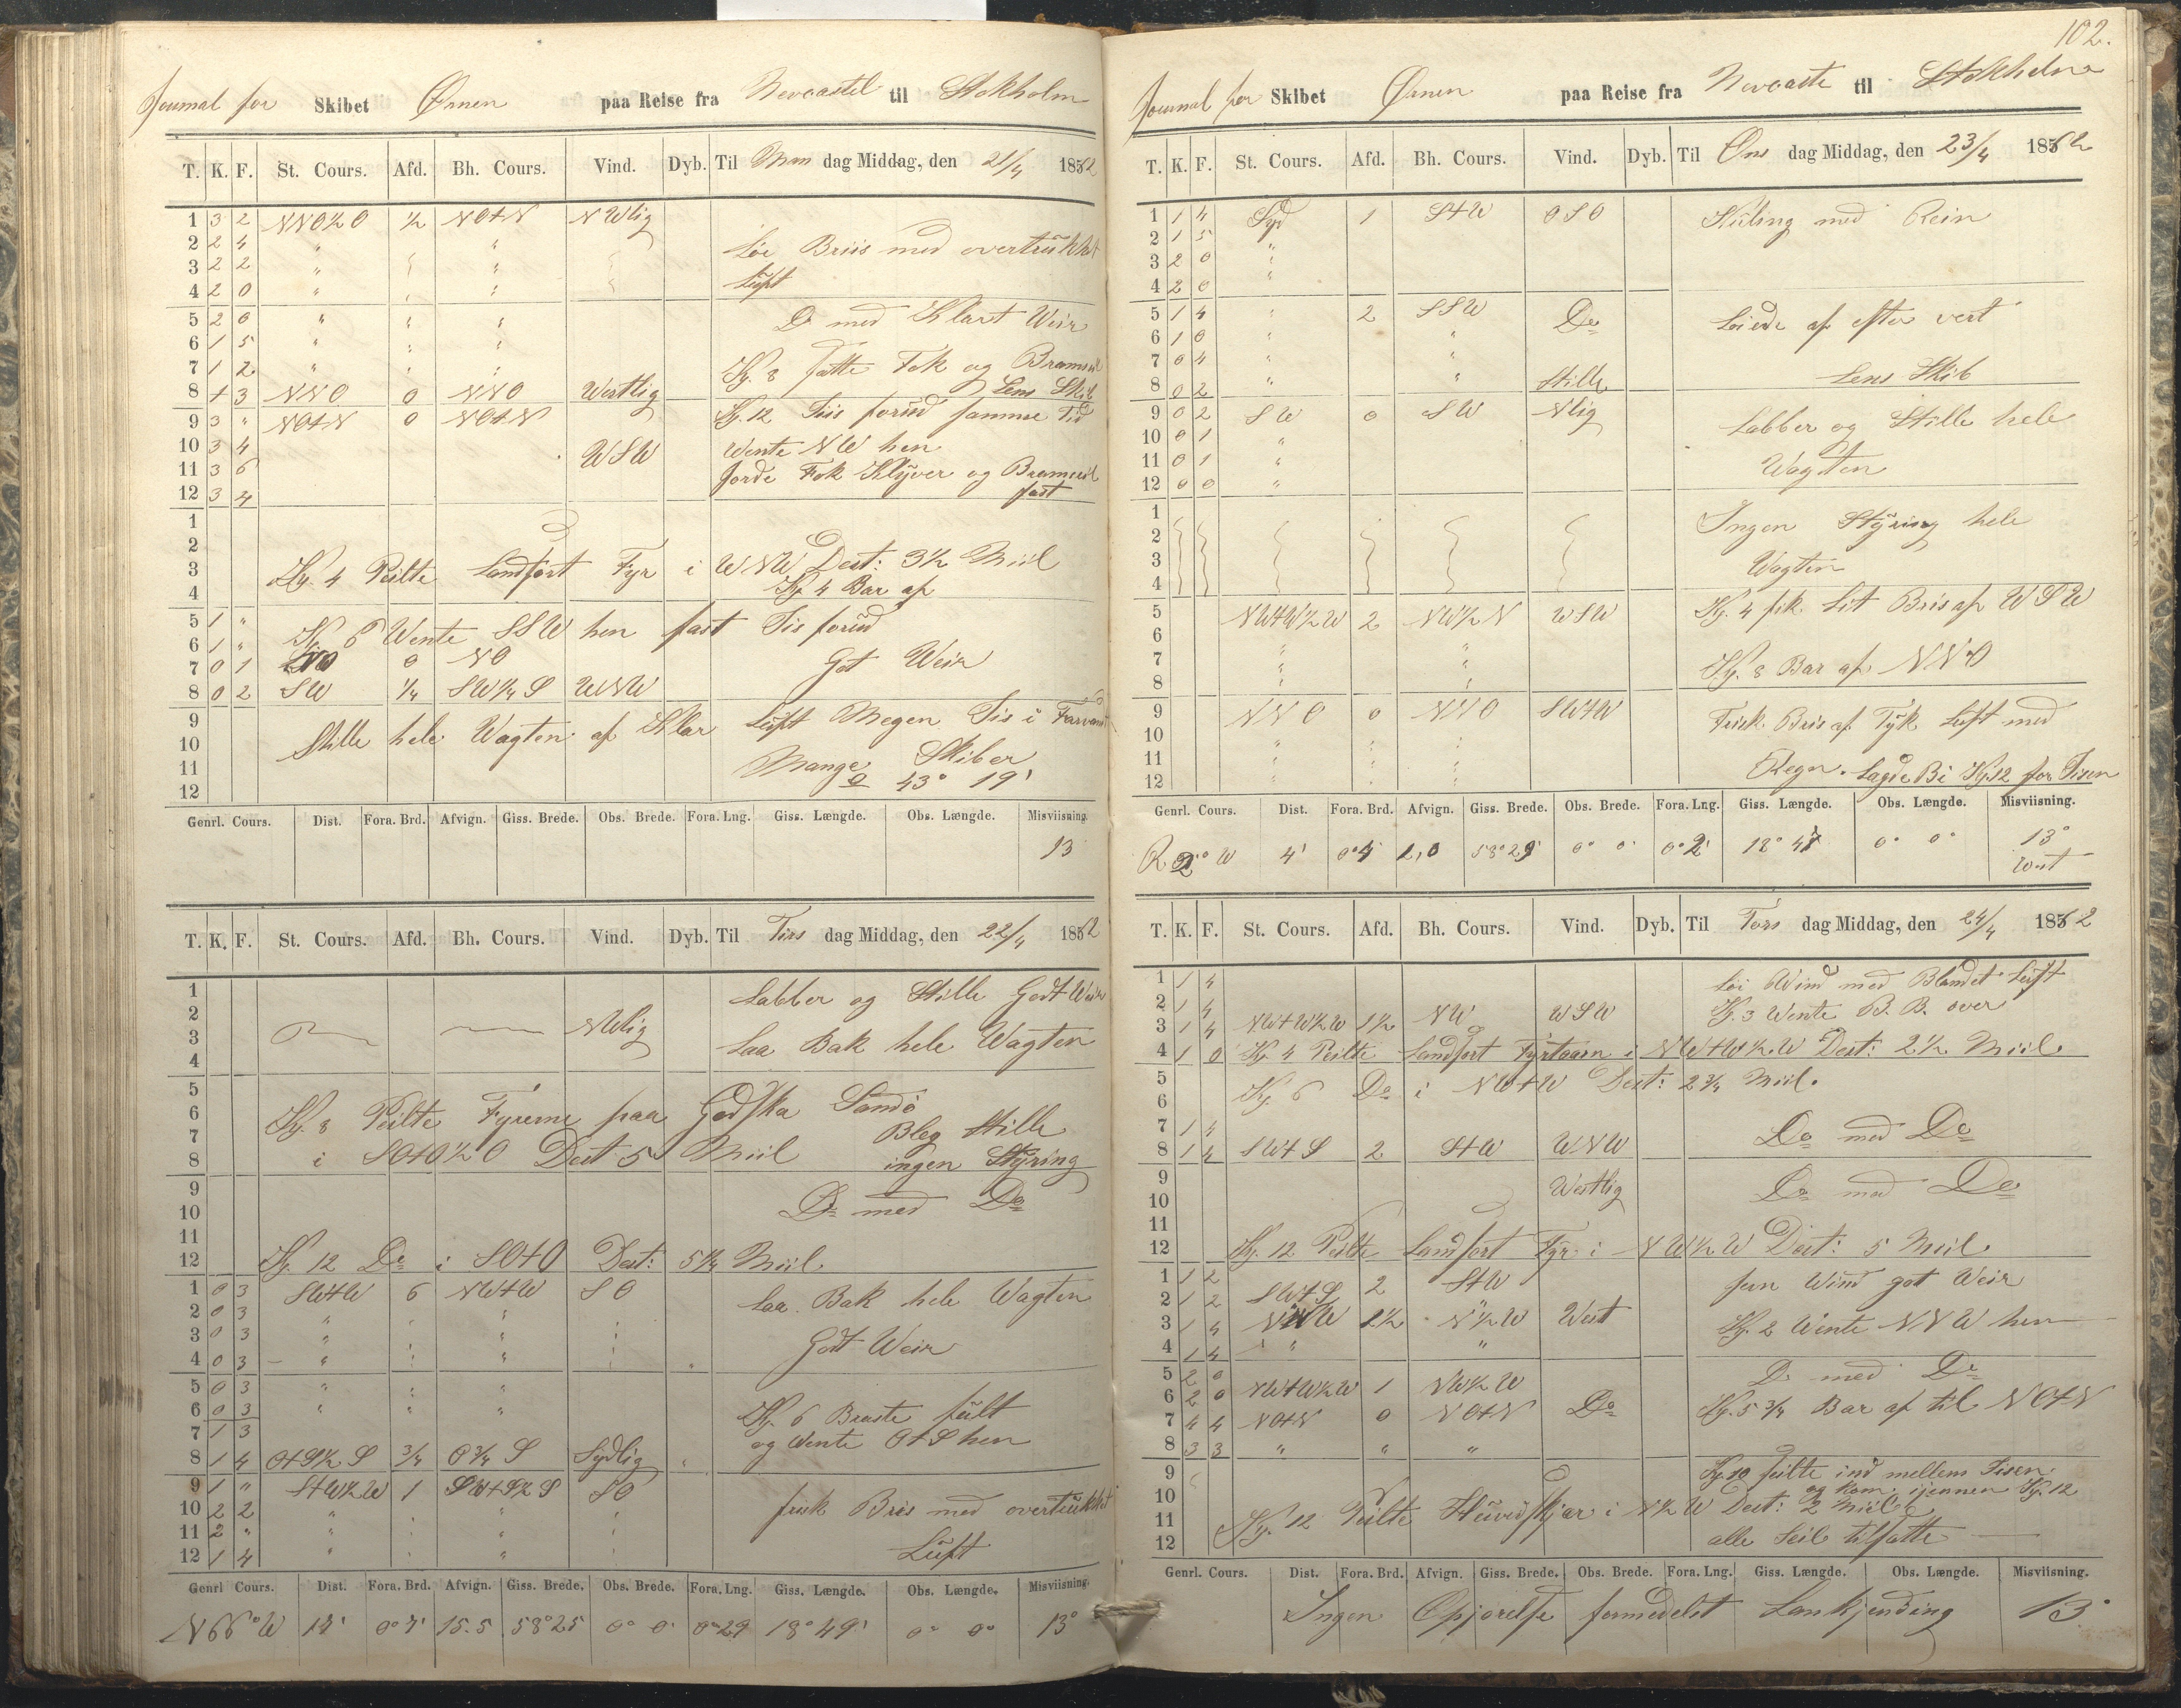 Journal for Skibet Ørnen paa Reise fra Newcastel til Stokholm
T. K. F. St. Cours. Afd. Bh. Cours. Vind. Dyb. Til Man dag Middag, den 21/4 1862
1 3 2 NNO½O ½ NO+N NWlig
2 2 4 " " Løi Briis med overtrükket
3 2 2 " "
4 2 0 " " Lüft
5 2 0 " " Do med Klart Weir
6 1 5 " "
7 1 2 " " Kl. 8 satte Fok og Bramseil
8 + 3 NNO 0 NNO Westlig Lens Skib
9 3 " NO+N 0 NO+N Kl. 12 Iis forüd samme Tid
10 3 4 WSW Wente NW hen
11 3 6 Jorde Fok Klyver og Bramseil
12 3 4 fast
1
2
3 Kl. 4 Peilte Landsort Fyr i WNW Dest: 3½ Miil
4 Kl 4 Bar af
5 1 " Kl 6 Wente SSW hen fast Iis forüd
6 1 "
7 0 1 NO 0 NO Got Weir
8 0 2 SW ¼ SW¼S WNW
9 Stille hele Wagten af Klar Lüft Megen Iis i Farvand
10
11 Mange Skiber
12 43° 19'
Genrl. Cours. Dist. Fora. Brd. Afvign. Giss. Brede. Obs. Brede. Fora. Lng. Giss. Længde. Obs. Længde. Misviisning.
13
T. K. F. St. Cours. Afd. Bh. Cours. Vind. Dyb. Til Tirs dag Middag, den 22/4 1862
1 Labber og Stille Godt Weir
2 NWlig
3 Laa Bak hele Wagten
4
5
6 Kl. 8 Peilte Fyrerne paa Godska Sandö
7 Bleg Stille
8 i SO+O½O Dest 5 Miil ingen Styring
9 Do med Do
10
11
12 Kl. 12 Do i SO+O Dest: 5¼ Miil
1 0 3 SW+W 6 NW+W SO Laa Bak hele Wagten
2 0 3 " "
3 0 3 " " Godt Weir
4 0 3 " "
5 0 3 " "
6 0 3 " " " Kl. 6 Braste fült
7 1 3 og Wente O+S hen
8 1 4 O+S½S ¾ O¾S Sydlig
9 1 " S+W½W 1 SW+S½S SO
10 2 2 " " frisk Bris med overtrükket
11 2 " " "
12 1 4 " " Lüft
Genrl Cours. Dist. Fora. Brd. Afvign. Giss. Brede. Obs. Brede. Fora. Lng. Giss. Længde. Obs. Længde. Misviisning.
N66°W 15.5 58°25 0° 0' 0°29 18°49' 0° 0° 13°
102.
Journal for Skibet Ørnen paa Reise fra Newcaste til Stokholm
T. K. F. St. Cours. Afd. Bh. Cours. Vind. Dyb. Til Ons dag Middag, den 23/4 1862
1 1 4 Syd 1 S+W OSO Küling med Rein
2 1 5 "
3 2 0 "
4 2 0 "
5 1 4 " 2 SSW Do Løiede af efter vert
6 1 0 " "
7 0 4 " "
8 0 2 " " Stille Lens Skib
9 0 2 SW 0 SW Nlig Labber og Stille hele
10 0 1 "
11 0 1 " Wagten
12 0 0 "
1 Ingen Styring hele
2
3 Wagten
4
5 NW+W½W 2 NW½N WSW Kl. 4 fik Lit Bris af WSW
6
7 " " Kl. 8 Bar af NNO
8 " "
9 NNO 0 NNO SW+W Frisk Bris af Tyk Lüft med
10 " "
11 " " Regn. Lagde Bi Kl 12 for Iisen
12 " "
Genrl. Cours. Dist. Fora. Brd. Afvign. Giss. Brede. Obs. Brede. Fora. Lng. Giss. Længde. Obs. Længde. Misviisning.
W 4' 58°29' 0° 0' 0°2' 0° 0° 13° West
T. K. F. St. Cours. Afd. Bh. Cours. Vind. Dyb. Til Tors dag Middag, den 24/4 1862
1 1 4 Løi Wind med Blandet Lüft
2 1 4 Kl. 3 Wente B. B. over
3 1 4 NW+W½W 1½ NW WSW
4 1 0 Kl 4 Peilte Landsort Fyrtaarn i NW+W½W Dest: 2½ Miil
5 Kl. 6 Do i NW+W Dest: 2¾ Miil.
6
7 1 4 Do med Do
8 1 4 SW+S 2 S+W WNW
9 Westlig Do med Do
10
11
12 Kl. 12 Peilte Landsort Fyr i NW½W Dest: 5 Miil
1 1 2 SW+S 2 S+W fin Wind got Weir
2 1 2
3 1 4 NNW 1½ N½W West Kl. 2 Wente NNW hen
4 1 4 " "
5 2 0 NW+W½W 1 NW½W Do med Do
6 2 0
7 4 4 NO+N 0 NO+N Do Kl. 5¾ Bar af til NO+N
8 3 3 " " "
9 Kl 10 seilte ind mellem Iisen
10 og kom igiennem Kl. 12
11 Kl. 12 Peilte Hüvudskjær i N½W Dest: 2 Miil
12 alle Seil tilsatte
Genrl. Cours. Dist. Fora. Brd. Afvign. Giss. Brede. Obs. Brede. Fora. Lng. Giss. Længde. Obs. Længde. Misviisning.
Ingen Opjørelse formedelst Lankjending 13°